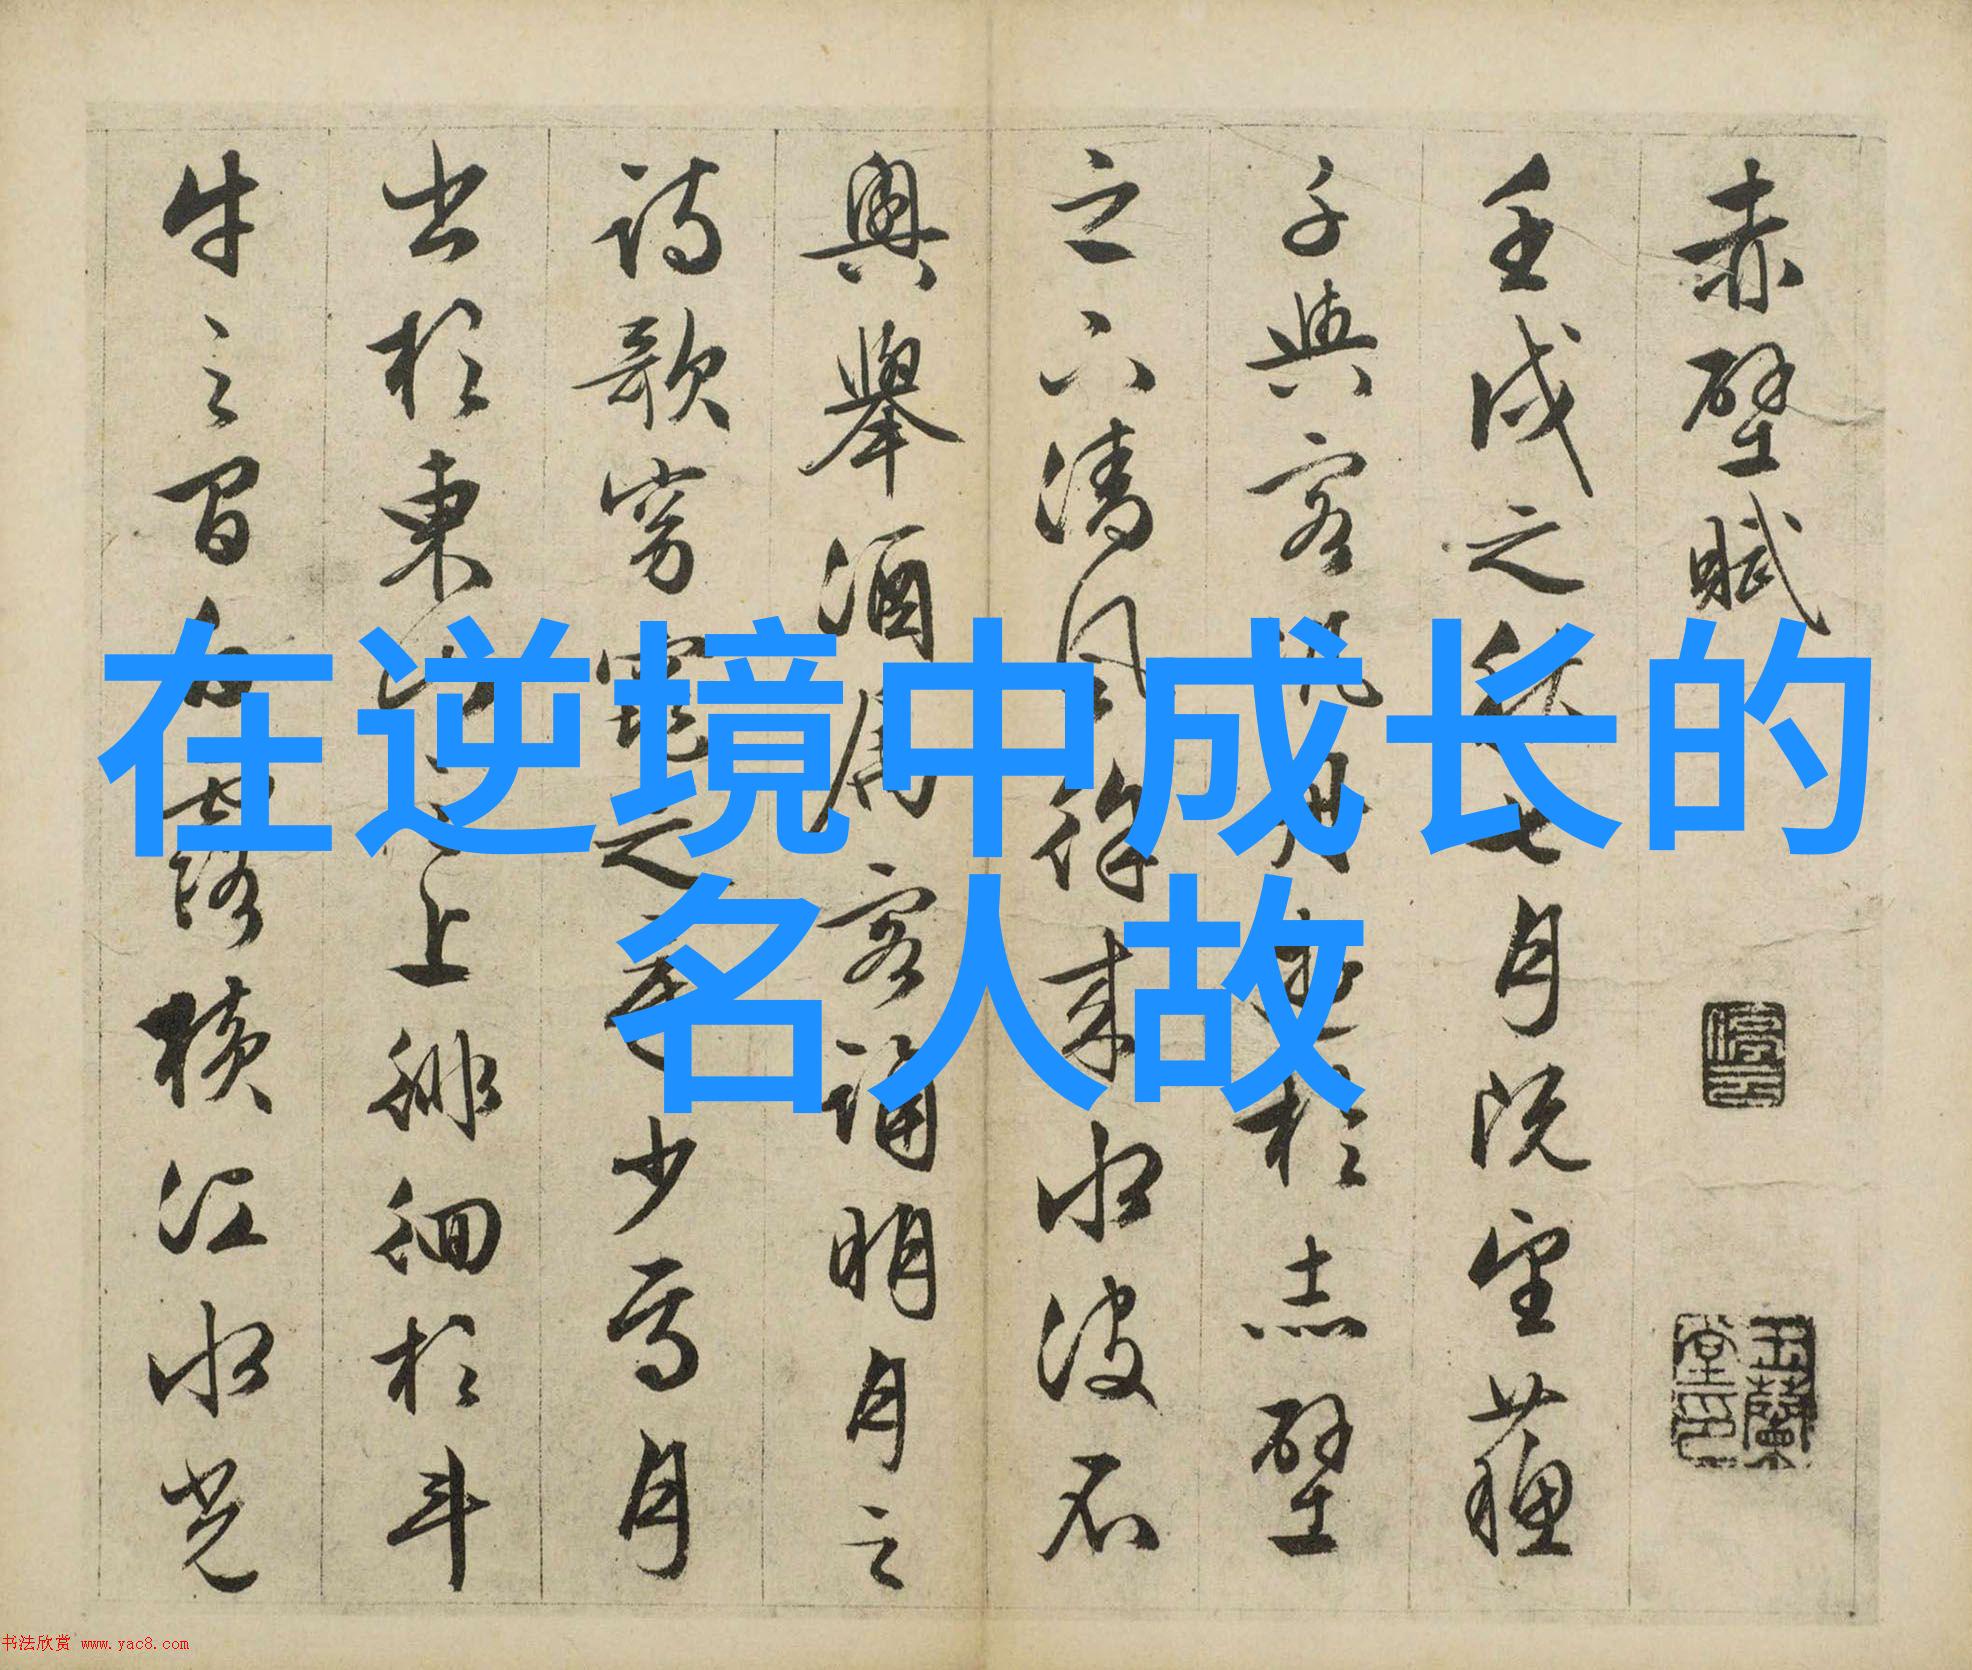 赤壁賦
壬戌之秋七月既望蘇
子與客汎舟遊於赤壁
之下清風徐來水波不
興舉酒屬客誦明月之
詩歌窈窕之章少焉月
出於東山之上徘徊於斗
牛之間白露橫江水光
玉蘭堂印
在逆境中成长的
名人故
书法欣赏 www.yac8.com